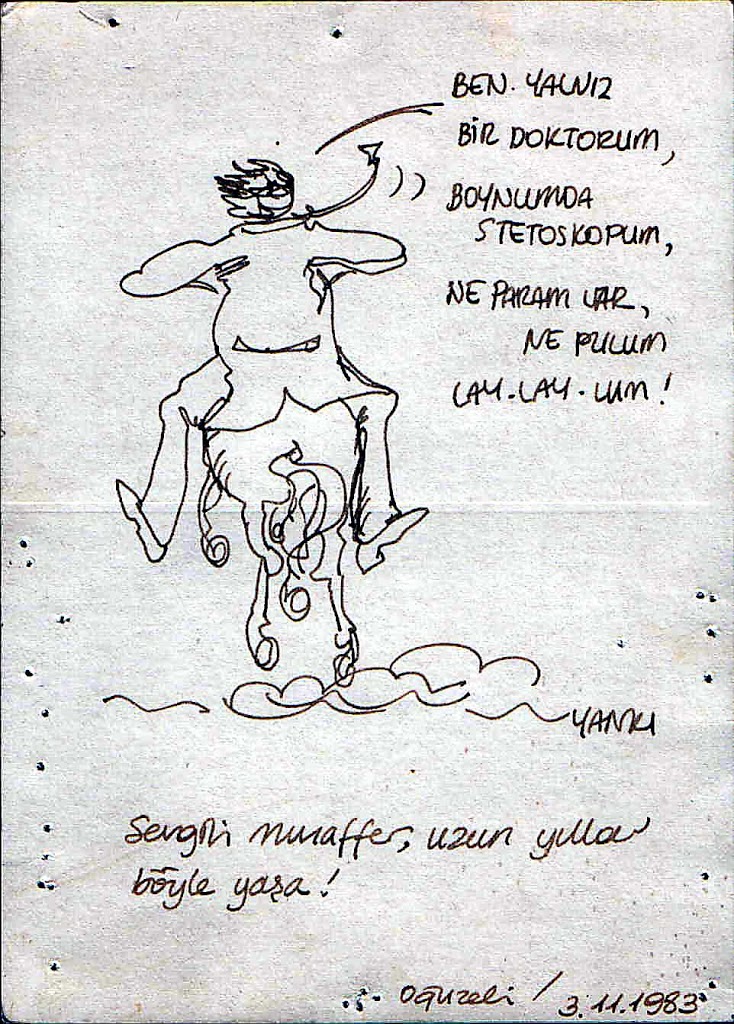 BEN YALNIZ
BİR DOKTORUM,
BOYNUMDA
STETOSKOPUM,
NE PARAM VAR,
NE PULUM
LAY-LAY-LUM!
YANKI
Sevgili Muzaffer, uzun yıllar
böyle yaşa!
Oğuzeli / 3.11.1983